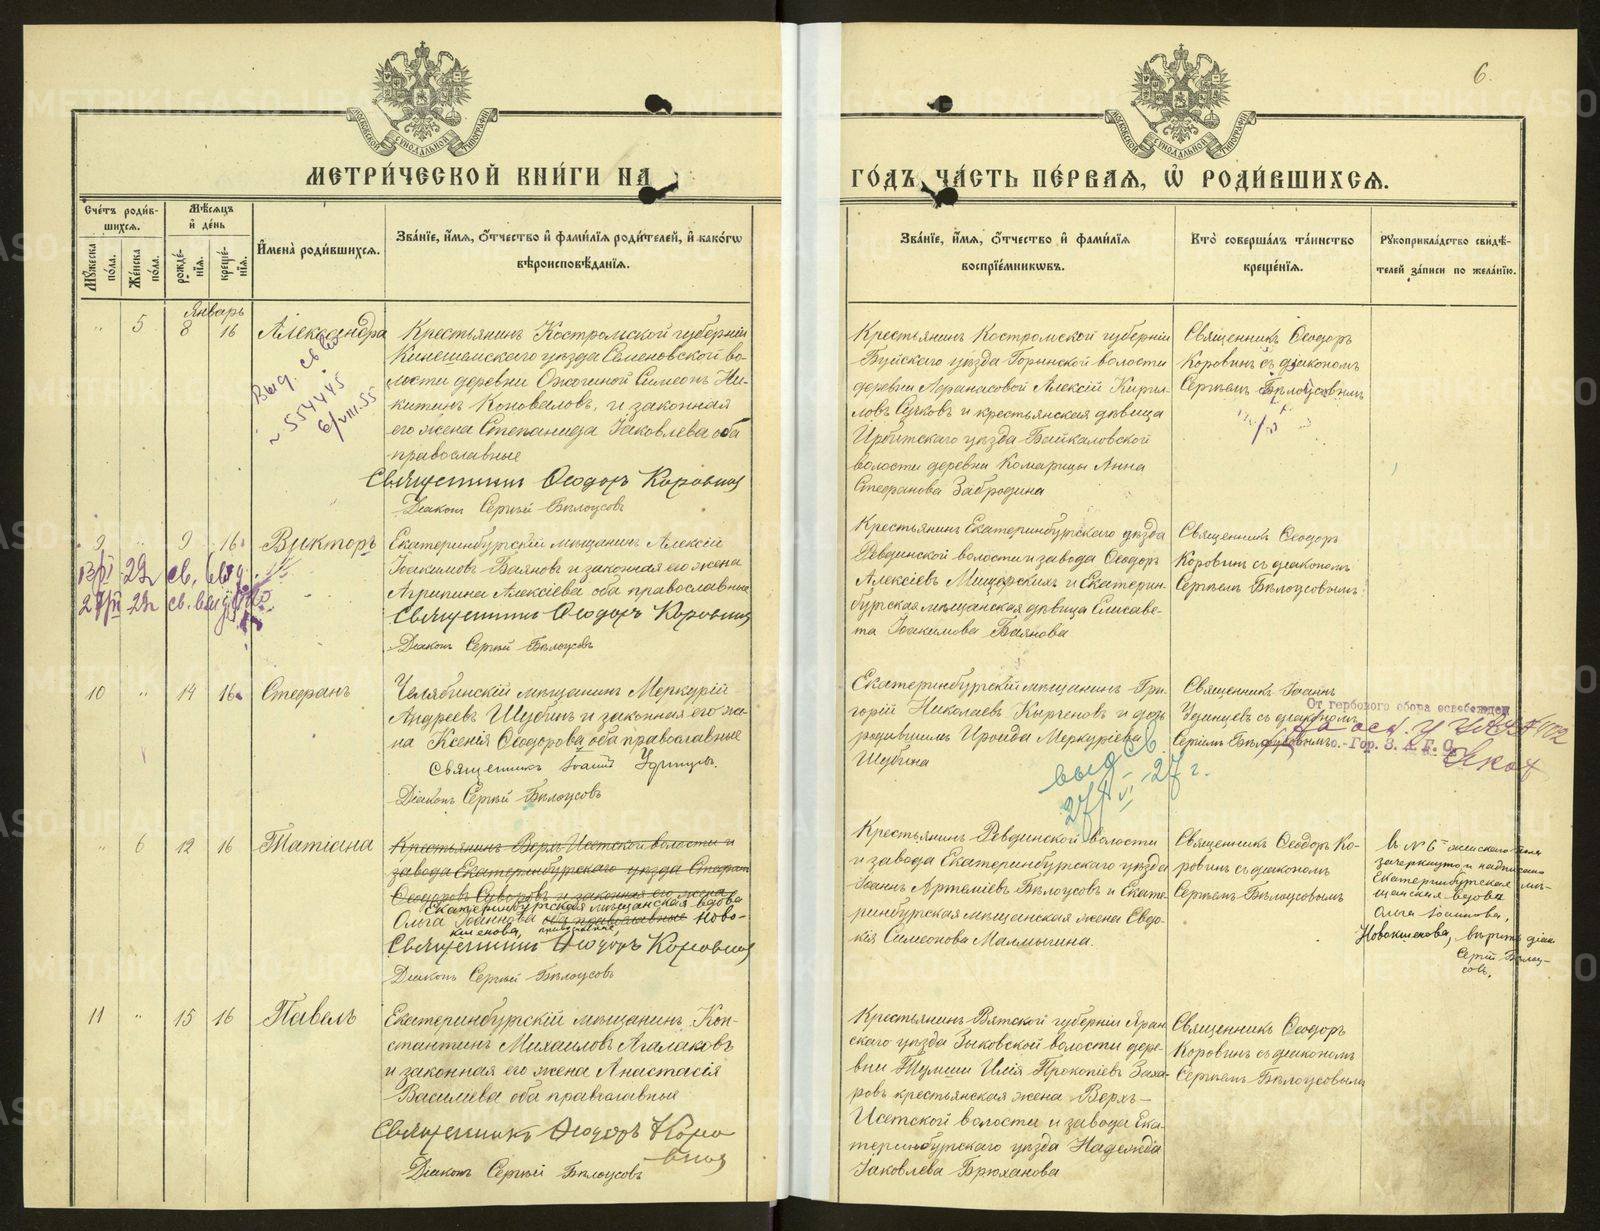 6.
МЕТРИ́ЧЕСКОЙ КНИ́ГИ НА
ГО́ДЪ, ЧА́СТЬ ПЕ́РВАЯ, Ѡ҆ РОДИ́ВШИХСЯ.
Сче́тъ роди́в-
шихся.
Мꙋжеска по́ла.
Же́нска по́ла.
Мѣ́сяцъ и҆ де́нь
рожде́-
нїя.
креще́-
нїя.
И҆мена̀ роди́вшихся.
Зва́нїе, и҆́мя, ѻ҆́тчество и҆ фами́лїя роди́телей, и҆ како́гѡ
вѣроисповѣ́данїя.
Зва́нїе, и҆́мя, ѻ҆́тчество и҆ фами́лїя
воспрїе́мникѡвъ.
Кто̀ соверша́лъ та́инство
креще́нїя.
Рꙋкоприкла́дство свидѣ́-
телей за́писи по жела́нїю.
Январь
" 5 8 16 Александра
Крестьянинъ Костромской губерніи
Кинешемскаго уѣзда Семеновской во-
лости деревни Ожогиной Симеонъ Ни-
китинъ Коноваловъ, и законная
его жена Степанида Іаковлева оба
православные
Священникъ Ѳеодоръ Коровинъ
Діаконъ Сергѣй Бѣлоусовъ
Выд. св во
554445
6/VIII-55
Крестьянинъ Костромской губерніи
Буйскаго уѣзда Горинской волости
деревни Аѳанасовой Алексій Кирил-
ловъ Сучковъ и крестьянская дѣвица
Ирбитскаго уѣзда Байкаловской
волости деревни Комарицы Анна
Стефанова Забродина
Священникъ Ѳеодоръ
Коровинъ съ діакономъ
Сергѣемъ Бѣлоусовымъ
9 " 9 16 Викторъ
Екатеринбургскій мѣщанинъ Алексій
Іоакимовъ Баяновъ и законная его жена
Агрипина Алексіева оба православные
Священникъ Ѳеодоръ Коровинъ
Діаконъ Сергѣй Бѣлоусовъ
Крестьянинъ Екатеринбургскаго уѣзда
Ревдинской волости и завода Ѳеодоръ
Алексіевъ Мищерскихъ и Екатерин-
бургская мѣщанская дѣвица Елисаве-
та Іоакимова Баянова
Священникъ Ѳеодоръ
Коровинъ съ діакономъ
Сергѣемъ Бѣлоусовымъ
10 " 14 16 Стефанъ
Челябинскій мѣщанинъ Меркурій
Андреевъ Шубинъ и законная его же-
на Ксенія Ѳеодорова оба православные
Священникъ Іоаннъ Удинцевъ
Діаконъ Сергѣй Бѣлоусовъ
Екатеринбургскій мѣщанинъ Гри-
горій Николаевъ и дочь
родившихъ Ираида Меркуріева
Шубина
выд св.
27 г.
Священникъ Іоаннъ
Удинцевъ съ діакономъ
Сергѣемъ Бѣлоусовымъ
От гербового сбора освобожден
Гор. З. А. Г. С.
" 6 12 16 Татіана
Крестьянинъ Верхъ-Исетской волости и
завода Екатеринбургскаго уѣзда Стефанъ
Ѳеодоровъ Суворовъ и законная его жена
Екатеринбургская мѣщанская вдова
Ольга Іоаннова оба православные Ново-
кшенова, православные,
Священникъ Ѳеодоръ Коровинъ
Діаконъ Сергѣй Бѣлоусовъ
Крестьянинъ Ревдинской волости
и завода Екатеринбургскаго уѣзда
Іоаннъ Артеміевъ Бѣлоусовъ и Екате-
ринбургская мѣщанская жена Евдо-
кія Симеонова Малмыгина.
Священникъ Ѳеодоръ Ко-
ровинъ съ діакономъ
Сергѣемъ Бѣлоусовымъ
Въ № 6 женскаго пола
зачеркнуто и надписано
Екатеринбургская мѣ-
щанская вдова
Ольга Іоаннова,
Новокшенова, вѣрить діак.
Сергій Бѣлоу-
совъ.
11 " 15 16 Павелъ
Екатеринбургскій мѣщанинъ Кон-
стантинъ Михаиловъ Агалаковъ
и законная его жена Анастасія
Василиева оба православные
Священникъ Ѳеодоръ Коро
винъ
Діаконъ Сергѣй Бѣлоусовъ
Крестьянинъ Вятской губерніи Яран
скаго уѣзда Зыковской волости дере-
вни Тумши Илія Прокопіевъ Заха-
ровъ крестьянская жена Верхъ-
Исетской волости и завода Ека-
теринбургскаго уѣзда Надежда
Іаковлева Брюханова
Священникъ Ѳеодоръ
Коровинъ съ діакономъ
Сергѣемъ Бѣлоусовымъ